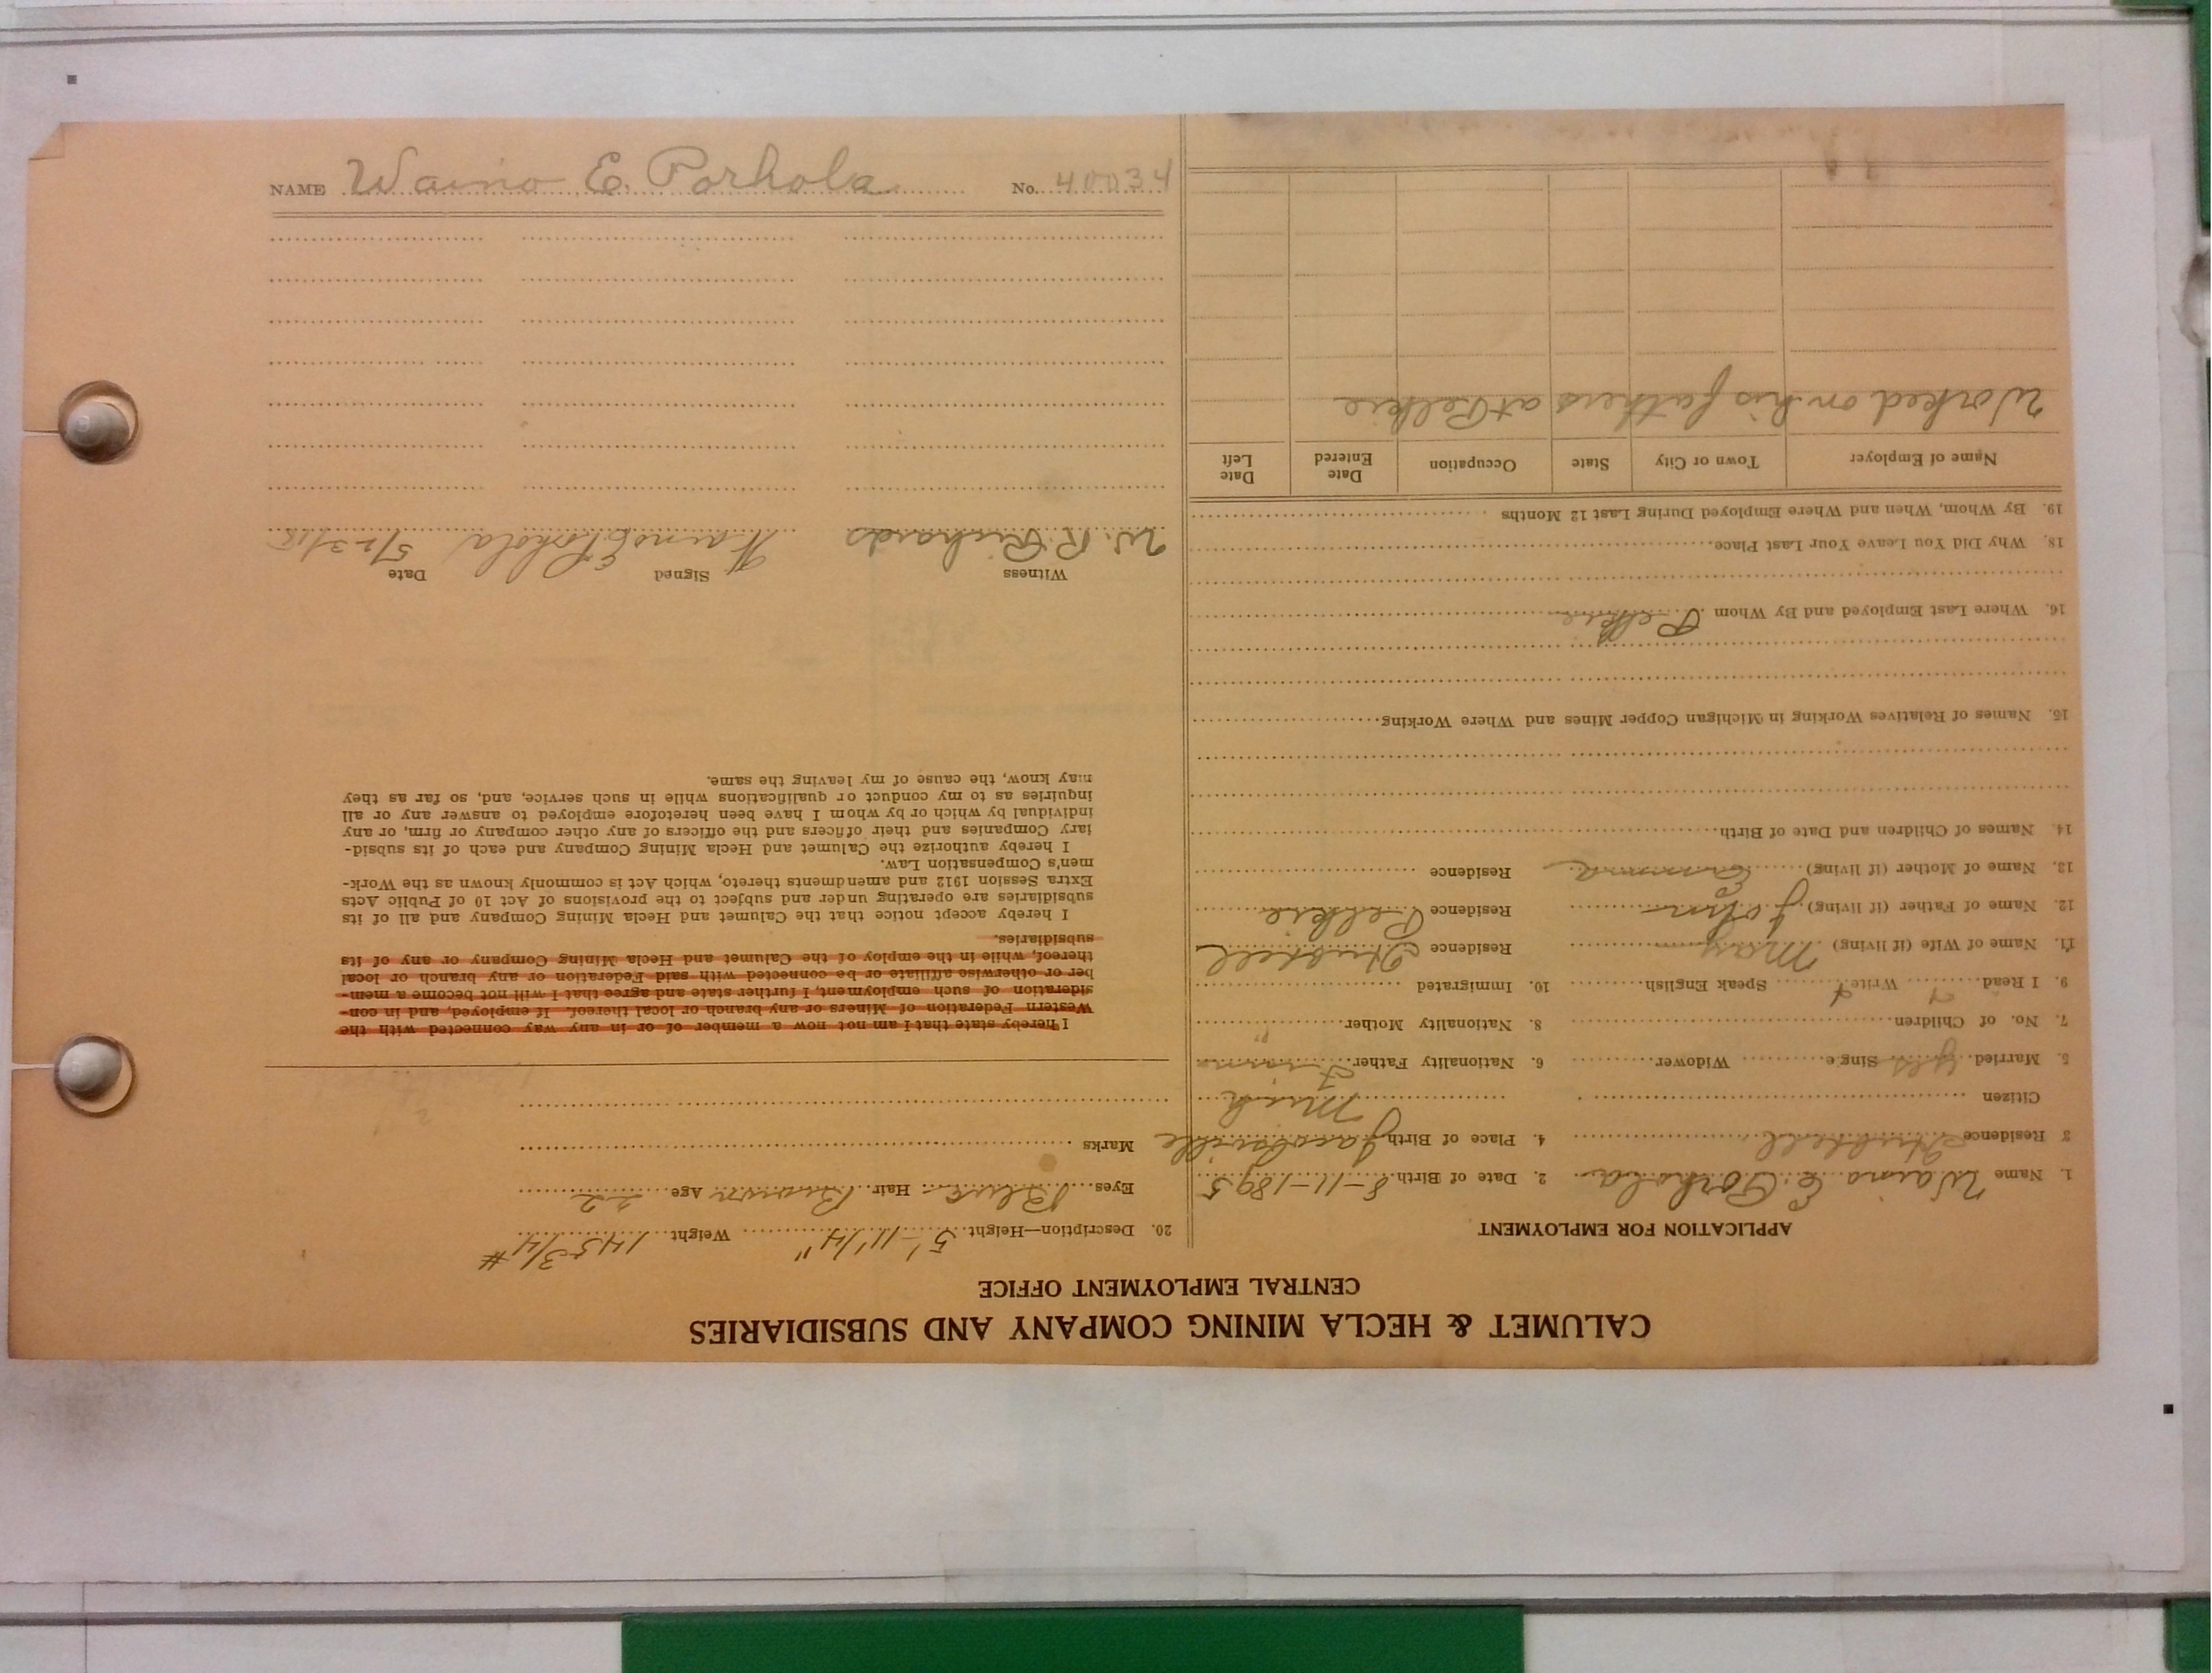 CALUMET & HECLA MINING COMPANY AND SUBSIDIARIES
CENTRAL EMPLOYMENT OFFICE
APPLICATION FOR EMPLOYMENT
1. Name Waino E. Porhola 2. Date of Birth 8-11-1895
3 Residence Hubbell 4. Place of Birth Jacobsville
Citizen Mich
5. Married yes Sing e Widower 6. Nationality Father Finn
7. No. of Children 8. Nationality Mother "
9. I Read Write Speak English 10. Immigrated
11. Name of Wife (if living) May Residence Hubbell
12. Name of Father (if living) John Residence Pelkie
13. Name of Mother (if living) Emma Residence
14. Names of Children and Date of Birth
15. Names of Relatives Working in Michigan Copper Mines and Where Working
16. Where Last Employed and By Whom Pelkie
18. Why Did You Leave Your Last Place
19. By Whom, When and Where Employed During Last 12 Months
Name of Employer Town or City State Occupation Date Entered Date Left
Worked on his fathers at Pelkie
20. Description—Height 5'-11 1/4" Weight 145 3/4 #
Eyes Blue Hair Brown Age 22
Marks
I hereby state that I am not now a member of or in any way connected with the
Western Federation of Miners or any branch or local thereof. If employed, and in con-
sideration of such employment, I further state and agree that I will not become a mem-
ber or otherwise affiliate or be connected with said Federation or any branch or local
thereof, while in the employ of the Calumet and Hecla Mining Company or any of its
subsidiaries.
I hereby accept notice that the Calumet and Hecla Mining Company and all of its
subsidiaries are operating under and subject to the provisions of Act 10 of Public Acts
Extra Session 1912 and amendments thereto, which Act is commonly known as the Work-
men's Compensation Law.
I hereby authorize the Calumet and Hecla Mining Company and each of its subsid-
iary Companies and their officers and the officers of any other company or firm, or any
individual by which or by whom I have been heretofore employed to answer any or all
inquiries as to my conduct or qualifications while in such service, and, so far as they
may know, the cause of my leaving the same.
Witness Signed Date
W. R. Richards Waino E Porhola 5/23/18
NAME Waino E. Porhola No. 40034